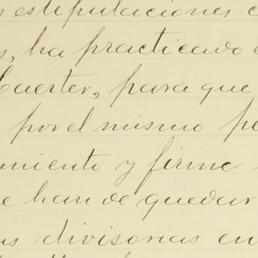 s estipulaciones c
s, ha practicado
Cuerter, para que
por el mismo pe
miento y firme
e han de quedar
as divisorias en